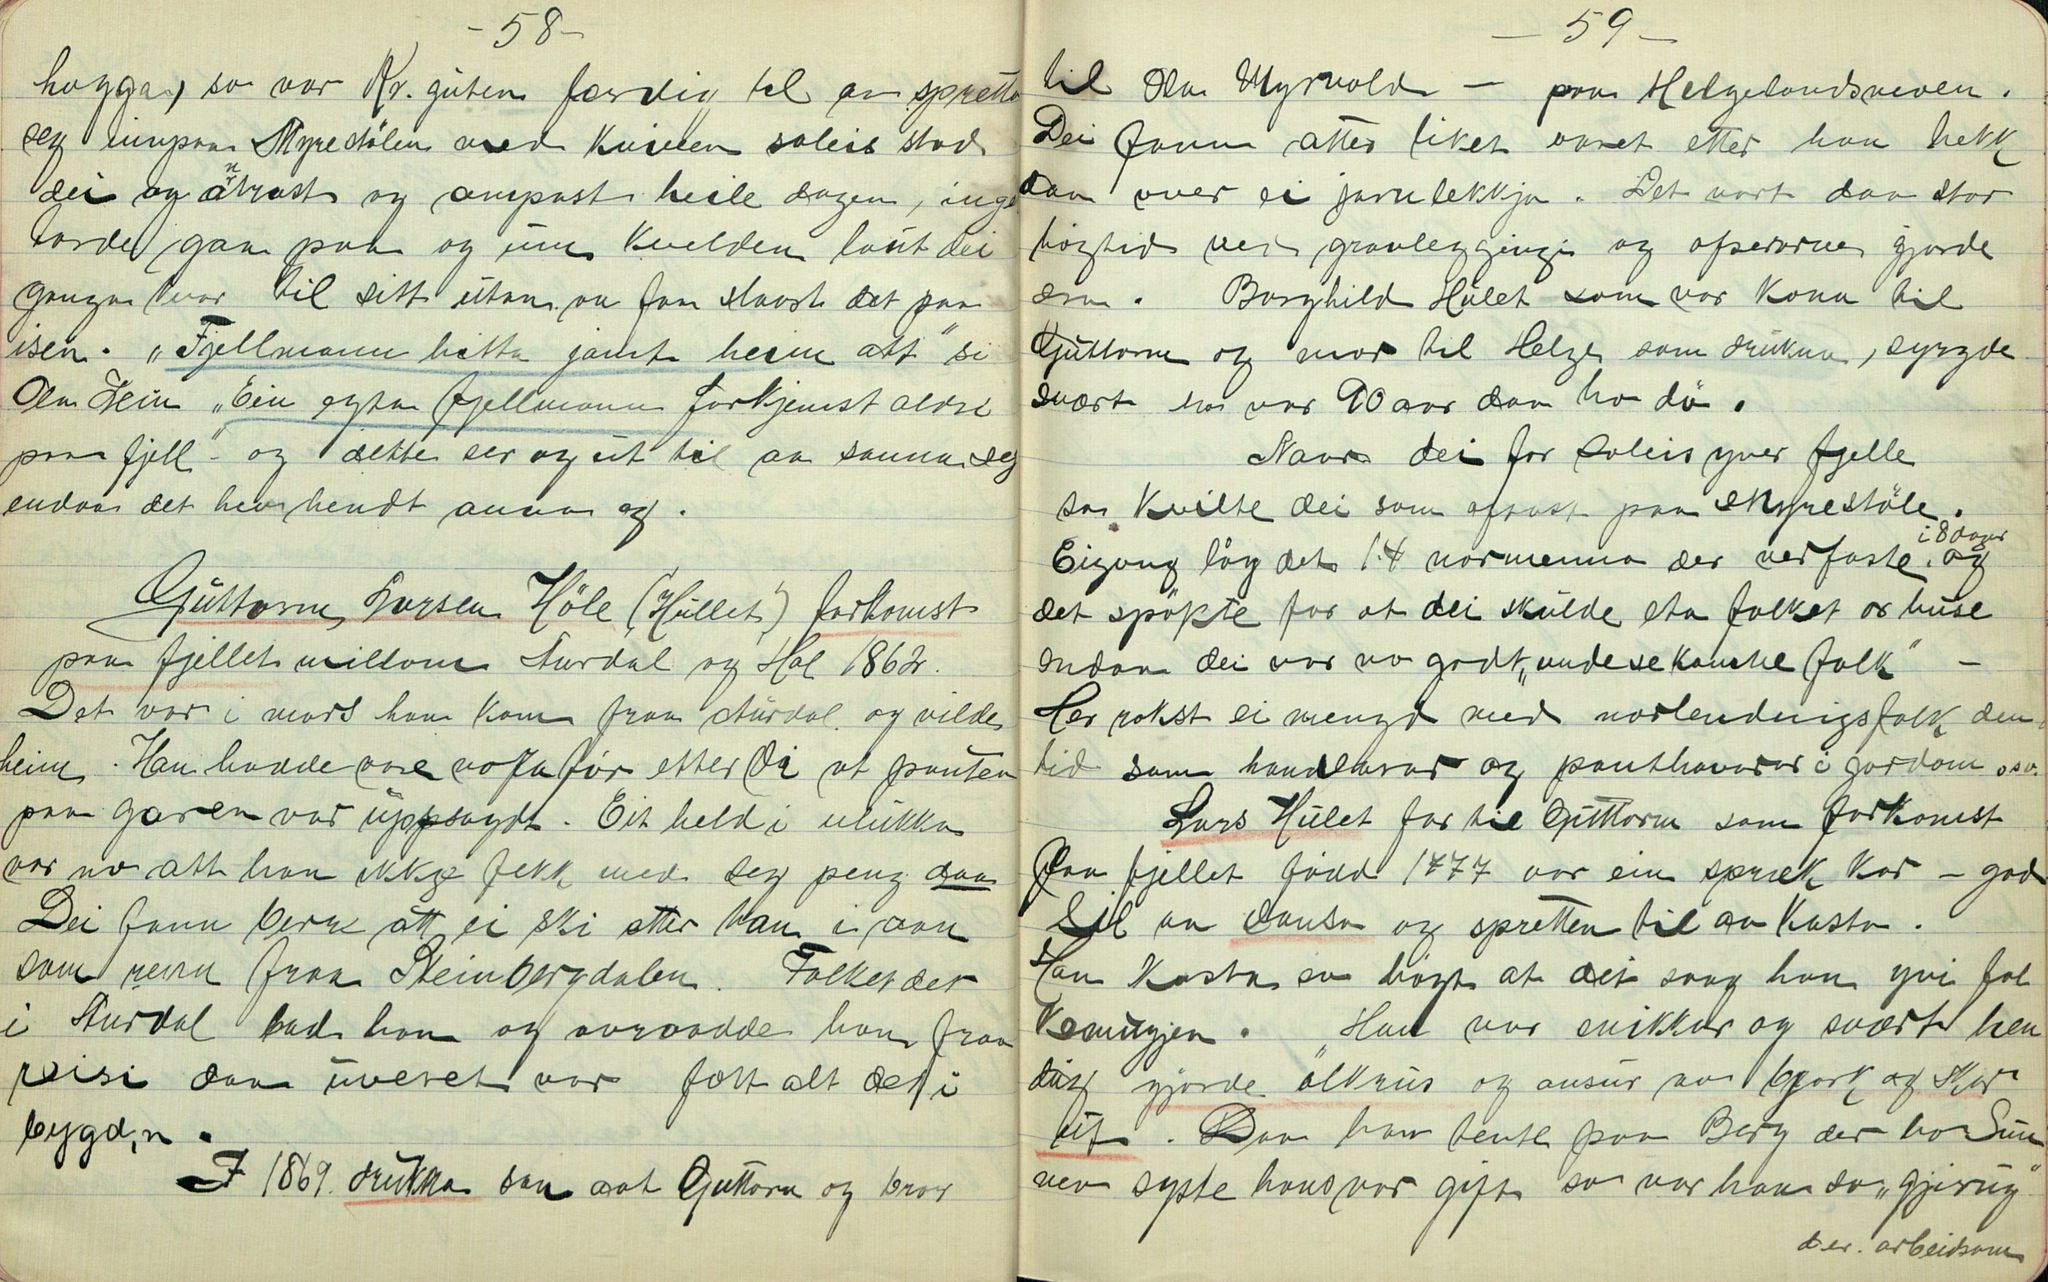 -58-
hogga, so var Kr. guten færdig til aa spretta
seg innpaa Skyrestölen med kniven soleis stod
dei og åtrast og ampast heile dagen, inge
torde gaa paa og um kvelden laut dei
ganga kvar til sitt utan aa faa slaast det paa
isen. "Fjellmann hitta jamt heim att" si
Ola Hein "Ein egta fjellmann forkjemst aldri
paa fjell" og dette ser og ut til aa sanna seg
endaa det hev hendt anna og.
Guttorm Larsen Höle (Hullet) forkomst
paa fjellet millom Aurdal og Hol 1862.
Det var i mars han kom fraa Aurdal og vilde
heim. Han hadde vore norfa för etterdi at panten
paa garen var uppsagdt. Eit held i ulukka
var no att han ikkje fekk med seg peng daa
Dei fann berre att ei ski etter han i aan
som renn fraa Steinbergdalen. Folket der
i Aurdal bad han og avraadde han fraa
reisi daa uveret var fælt alt det i
bygd,n.
I 1869. drukna son aat Guttorm og bror
-59-
til Ola Myrvold - paa Helgelandsneven.
Dei fann atter liket vaaret etter han hekk
daa over ei jarnlekkja. Det vart daa stor
högtid ved gravleggingi og ofserarne gjorde
æra. Borghild Hulet som var Kona til
Guttorm og mor til Helge som drukna, syrgde
svært ho var 90 aar daa ho dö.
Naar dei for soleis yver fjelle
so kvilte dei som oftast paa Skyrestöle.
i 8 dagar
Eigong låg det 14 normenna der verfaste. og
det spökte for at dei skulde eta folket or huse
endaa dei var no godt "undesekanhe folk" -
Her rokst ei mengd med norlendingsfolk den
tid som handlarar og panthavarar i gardom osv.
Lars Hulet far til Guttorm som forkomst
paa fjellet född 1777 var ein sprek kar - god
til aa dansa og spretten til aa kasta.
Han kasta so högt at dei saag han yvi fol
kemugjen. Han var snikkar og svært hen
dug gjorde ölkrus og ausur av bjork og skar
ut. Daa han tente paa Berg der ho Sun
neva syste hans var gift so var han so "gjirug"
d.e. arbeidsam